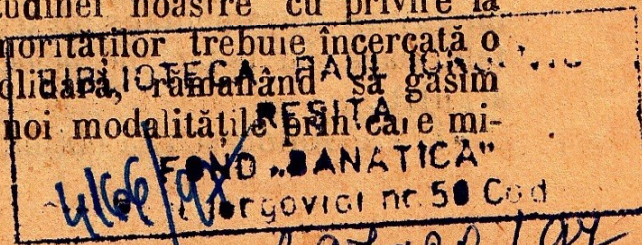 udinei noastre cu privire la
norităților trebuie încercată o
olidară, rămânând să găsim
noi modalitățile prin care mi-
BIBLIOTECA PAUL
REȘIȚA
FOND „BANATICA”
nr. 50 Cod